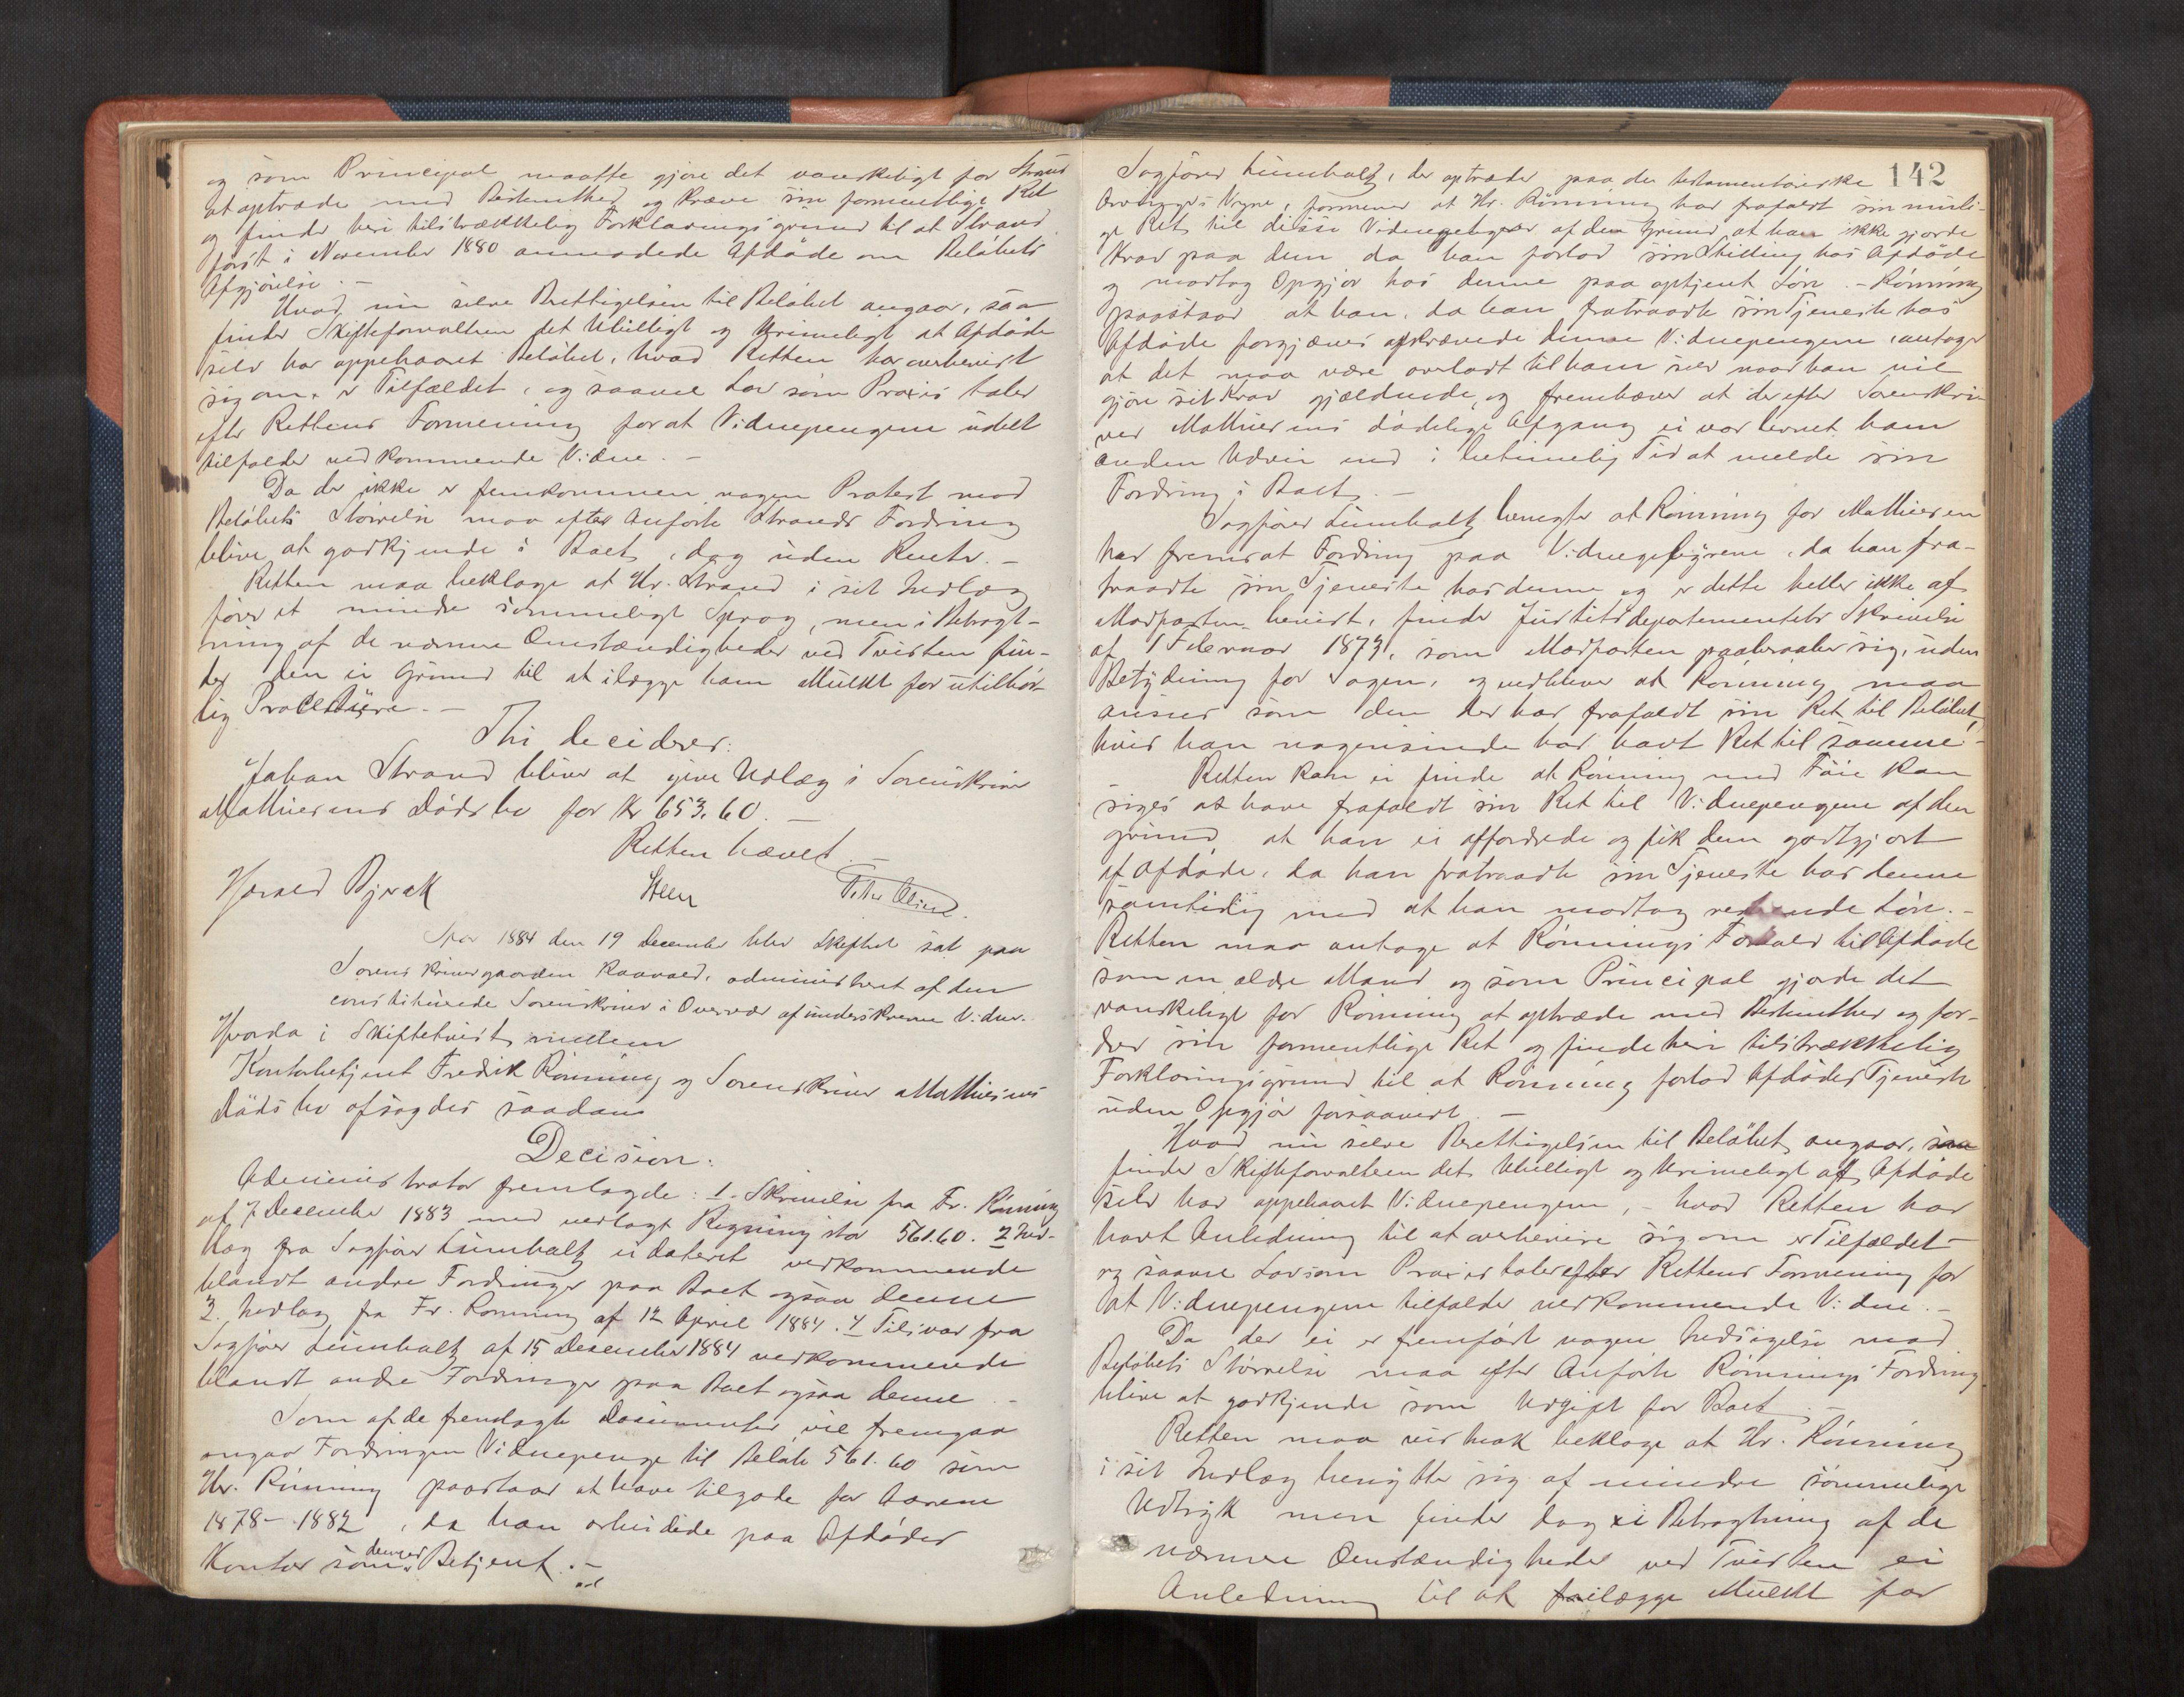 og som Principal maatte gjøre det vanskeligt for Strand
at optræde med Bestemthed og kræve sin formentlige Ret
og finder heri tilstrækkelig Forklaringsgrund til at Strand
først i November 1880 anmodede Afdøde om Beløbets
Afgjørelse. –
Hvad nu selve Berettigelsen til Beløbet angaar, saa
finder Skifteforvalteren det Ubilligt og Urimeligt at Afdøde
selv har oppebaaret Beløbet, hvad Retten har overbevist
sig om er Tilfældet, og saavel Lov som Praxis taler
efter Rettens Formening for at Vidnepengene udelt
tilfalder vedkommende Vidne. –
Da der ikke er fremkommen nogen Protest mod
Beløbets Størrelse maa efter Anførte Strands Fordring
blive at godkjende i Boet, dog uden Rente. –
Retten maa beklage at Hr. Strand i sit Indlæg
fører et mindre sømmeligt Sprog, men i Betragt-
ning af de nævnte Omstændigheder ved Tvisten fin-
der den ei Grund til at ilægge ham Mulkt for utilbør-
lig Procedure. –
Thi decideres:
Johan Strand bliver at give Udlæg i Sorenskriver
Mathiesens Dødsbo for Kr 653.60. –
Retten hævet. –
Harald Bjerck Steen Peter Olsen.
Aar 1884 den 19 December blev Skifteret sat paa
Sorenskrivergaarden Kaavald, administreret af den
constituerede Sorenskriver i Overvær af underskrevne Vidner.
Hvorda i Skiftetvist mellem
Kontorbetjent Fredrik Rønning og Sorenskriver Mathiesens
Dødsbo afsagdes saadan
Decision:
Administrator fremlagde: 1. Skrivelse fra Fr. Rønning
af 7 December 1883 med vedlagt Regning stor 561.60. 2 Ind-
læg fra Sagfører Lumholtz udateret vedkommende
blandt andre Fordringer paa Boet ogsaa denne
3. Indlæg fra Fr. Rønning af 12 April 1884. 4 Tilsvar fra
Sagfører Lumholtz af 15 December 1884 vedkommende
blandt andre Fordringer paa Boet ogsaa denne. –
Som af de fremlagte Documenter vil fremgaa
angaar Fordringen Vidnepenge til Beløb 561.60 som
Hr. Rønning paastaar at have tilgode for Aarene
1878 – 1882, da han arbeidede paa Afdødes
Kontor som dennes Betjent. –
142
Sagfører Lumholtz, der optræder paa de testamentariske
Arvingers Vegne, formener at Hr. Rønning har frafaldt sin muli-
ge Ret til disse Vidnegebyrer af den Grund, at han ikke gjorde
Krav paa dem da han forlod sin Stilling hos Afdøde
og modtog Opgjør hos denne paa optjent Løn. – Rønning
paastaar at han, da han fratraadte sin Tjeneste hos
Afdøde forgjæves afkrævede denne Vidnepengene, antager
at det maa være overladt til ham selv naar han vil
gjøre sit Krav gjældende, og fremhæver at der efter Sorenskri-
ver Mathiesens dødelige Afgang ei var levnet ham
anden Udvei end i betimelig Tid at melde sin
Fordring i Boet. –
Sagfører Lumholtz benegter at Rønning for Mathiesen
har fremsat Fordring paa Vidnegebyrene, da han fra-
traadte sin Tjeneste hos denne og er dette heller ikke af
Modparten bevist, finder Justitsdepartementets Skrivelse
af 1 Februar 1873, som Modparten paaberaaber sig, uden
Betydning for Sagen, og vedbliver at Rønning maa
ansees som den der har frafaldt sin Ret til Beløbet,
hvis han nogensinde har havt Ret til samme. –
Retten kan ei finde at Rønning med Føie kan
siges at have frafaldt sin Ret til Vidnepengene af den
Grund at han ei affordrede og fik dem godtgjort
af Afdøde, da han fratraadte sin Tjeneste hos denne
samtidig med at han modtog Løn. –
Retten maa antage at Rønnings Forhold til Afdøde
som en ældre Mand og som Principal gjorde det
vanskeligt for Rønning at optræde med Bestemthed og for-
dre sin formentlige Ret og finde heri tilstrækkelig
Forklaringsgrund til at Rønning forlod Afdødes Tjeneste
uden Opgjør forsaavidt. –
Hvad nu selve Berettigelsen til Beløbet angaar, saa
finder Skifteforvalteren det Ubilligt og Urimeligt at Afdøde
selv har oppebaaret Vidnepengene, – hvad Retten har
havt Anledning til at overbevise sig om er Tilfældet –
og saavel Lov som Praxis taler efter Rettens Formening for
at Vidnepengene tilfalder vedkommende Vidne. –
Da der ei er fremført nogen Indsigelse mod
Beløbets Størrelse maa efter Anførte Rønnings Fordring
blive at godkjende som Udgift for Boet. –
Retten maa beklage at Hr. Rønning
i sit Indlæg benytter sig af mindre sømmelige
Udtryk men finder dog i Betragtning af de
nævnte Omstændigheder ved Tvisten ei
Anledning til at ilægge Mulkt for